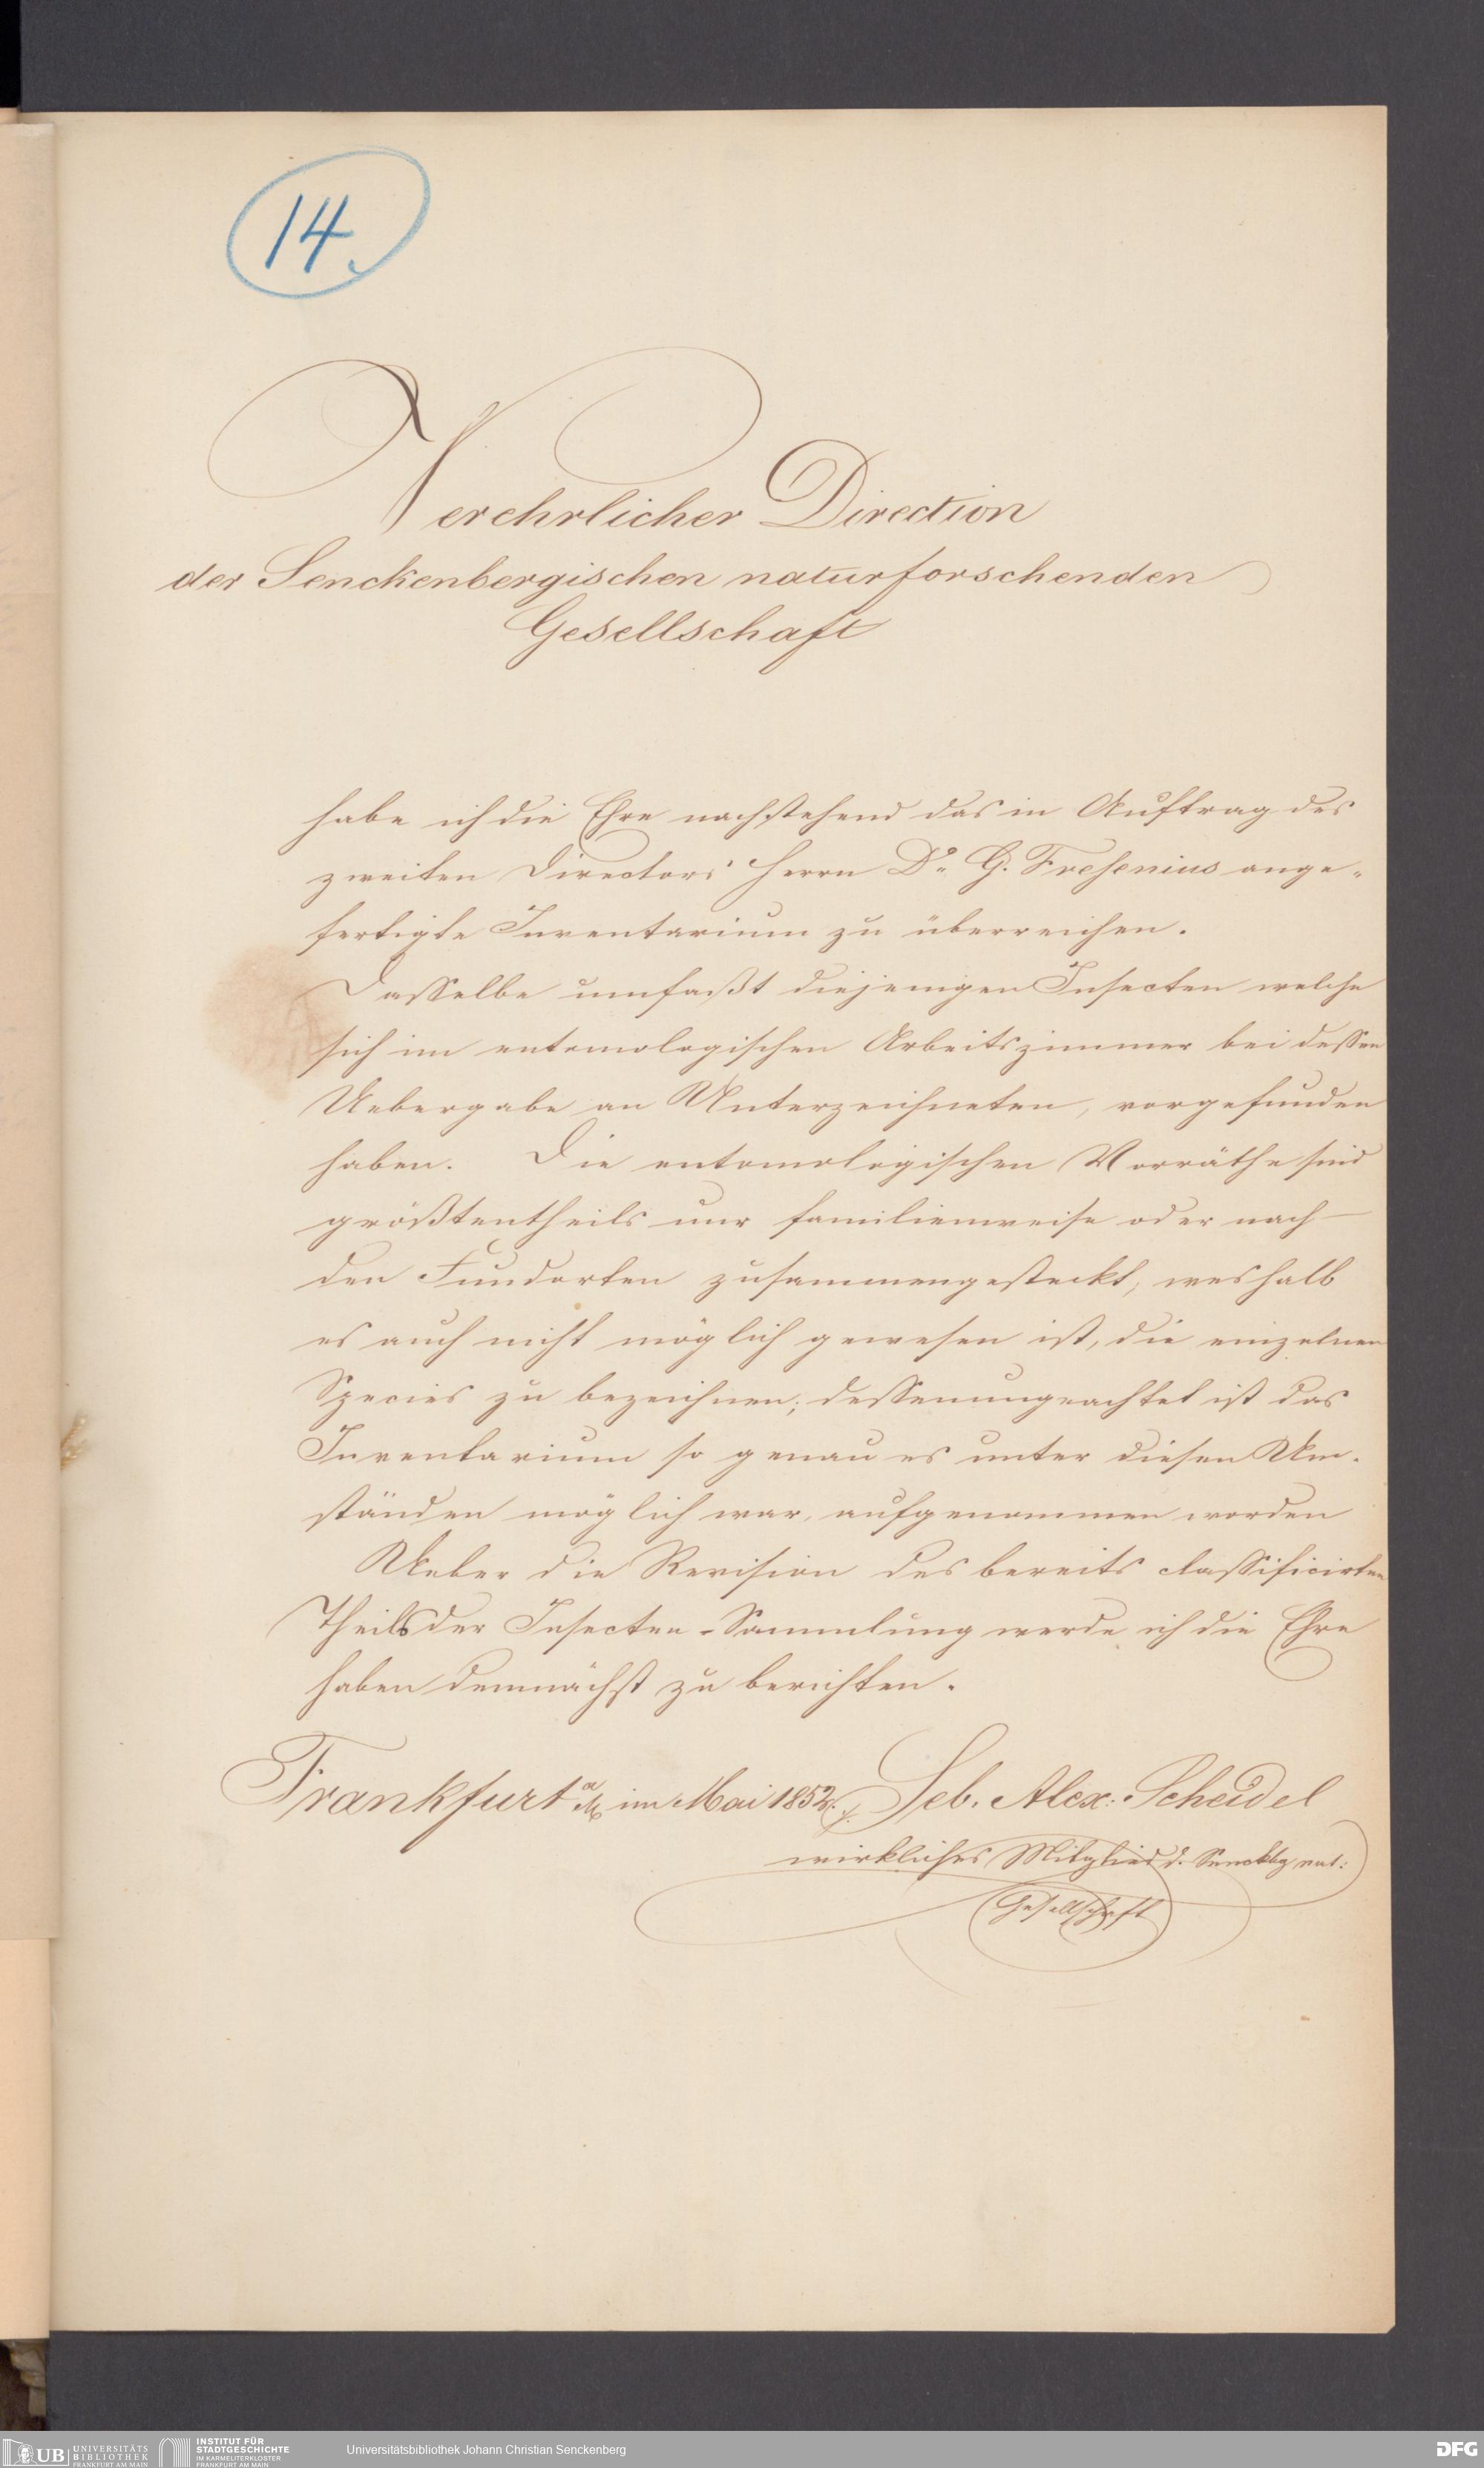 14.
Verehrlicher Direction
der Senckenbergischen naturforschenden
Gesellschaft
habe ich die Ehre nachstehend das in Auftrag des
zweiten Directors Herrn Dr. G. Fresenius ange-
fertigte Inventarium zu überreichen.
Dasselbe umfaßt diejenigen Insecten welche
sich im entomologischen Arbeitszimmer bei dessen
Uebergabe an Unterzeichneten, vorgefunden
haben. Die entomologischen Vorräthe sind
größtentheils nur familienweise oder nach
den Fundorten zusammengesteckt, weshalb
es auch nicht möglich gewesen ist, die einzelnen
Species zu bezeichnen; dessenungeachtet ist das
Inventarium so genau es unter diesen Um-
ständen möglich war, aufgenommen worden
Ueber die Revision des bereits classificirten
Theils der Insecten-Sammlung werde ich die Ehre
haben demnächst zu berichten.
Frankfurt a/M im Mai 1852. Seb. Alex: Scheidel
wirkliches Mitglied d. Senckbg nat:
Gesellschaft
UB UNIVERSITÄTS BIBLIOTHEK FRANKFURT AM MAIN
INSTITUT FÜR STADTGESCHICHTE IM KARMELITERKLOSTER FRANKFURT AM MAIN
Universitätsbibliothek Johann Christian Senckenberg
DFG